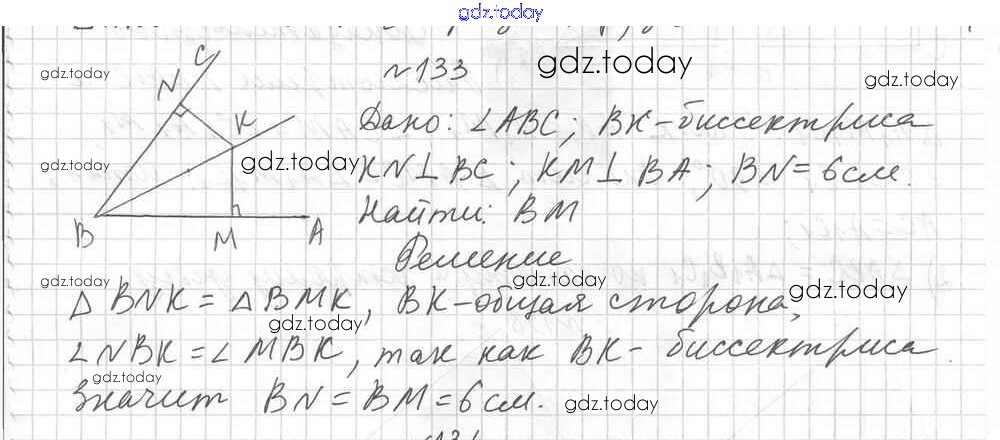 gdz.today
№133
C
N
K
B
M
A
gdz.today
gdz.today
gdz.today
Дано: ∠ABC; BK-биссектриса
gdz.today
gdz.today
KN⊥BC; KM⊥BA; BN=6см.
Найти: BM
Решение
gdz.today
gdz.today
gdz.today
△BNK=△BMK, BK-общая сторона,
gdz.today
∠NBK=∠MBK, так как BK-биссектриса.
gdz.today
Значит BN=BM=6см.
gdz.today